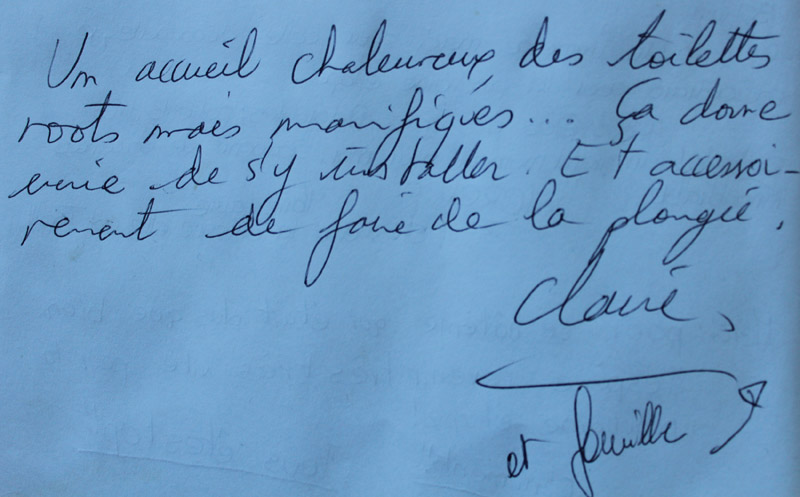 Un accueil chaleureux, des toilettes
roots mais manifiques... Ça donne
envie de s'y installer. Et accessoi-
rement de faire de la plongée.
Claire,
et famille